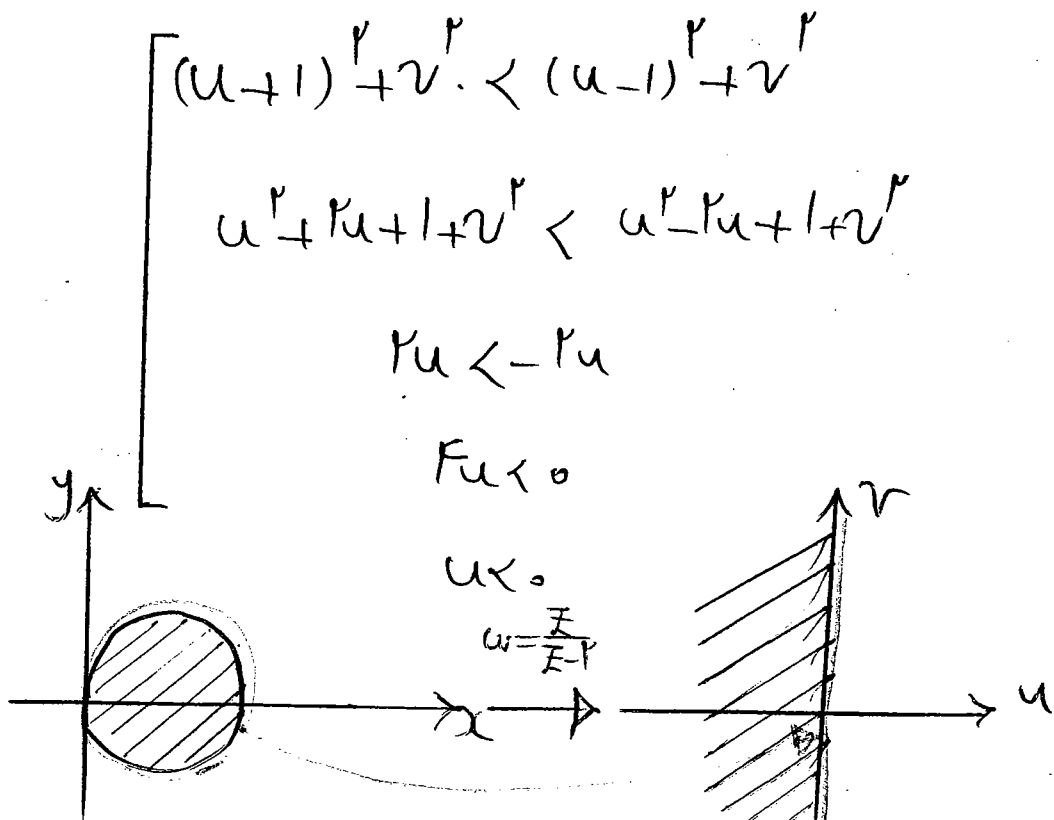 (u+1)^۲+v^۲ < (u-1)^۲+v^۲
u^۲+۲u+1+v^۲ < u^۲-۲u+1+v^۲
۲u < -۲u
۴u < 0
u < 0
w = z/(z-۲)
y
v
x
u